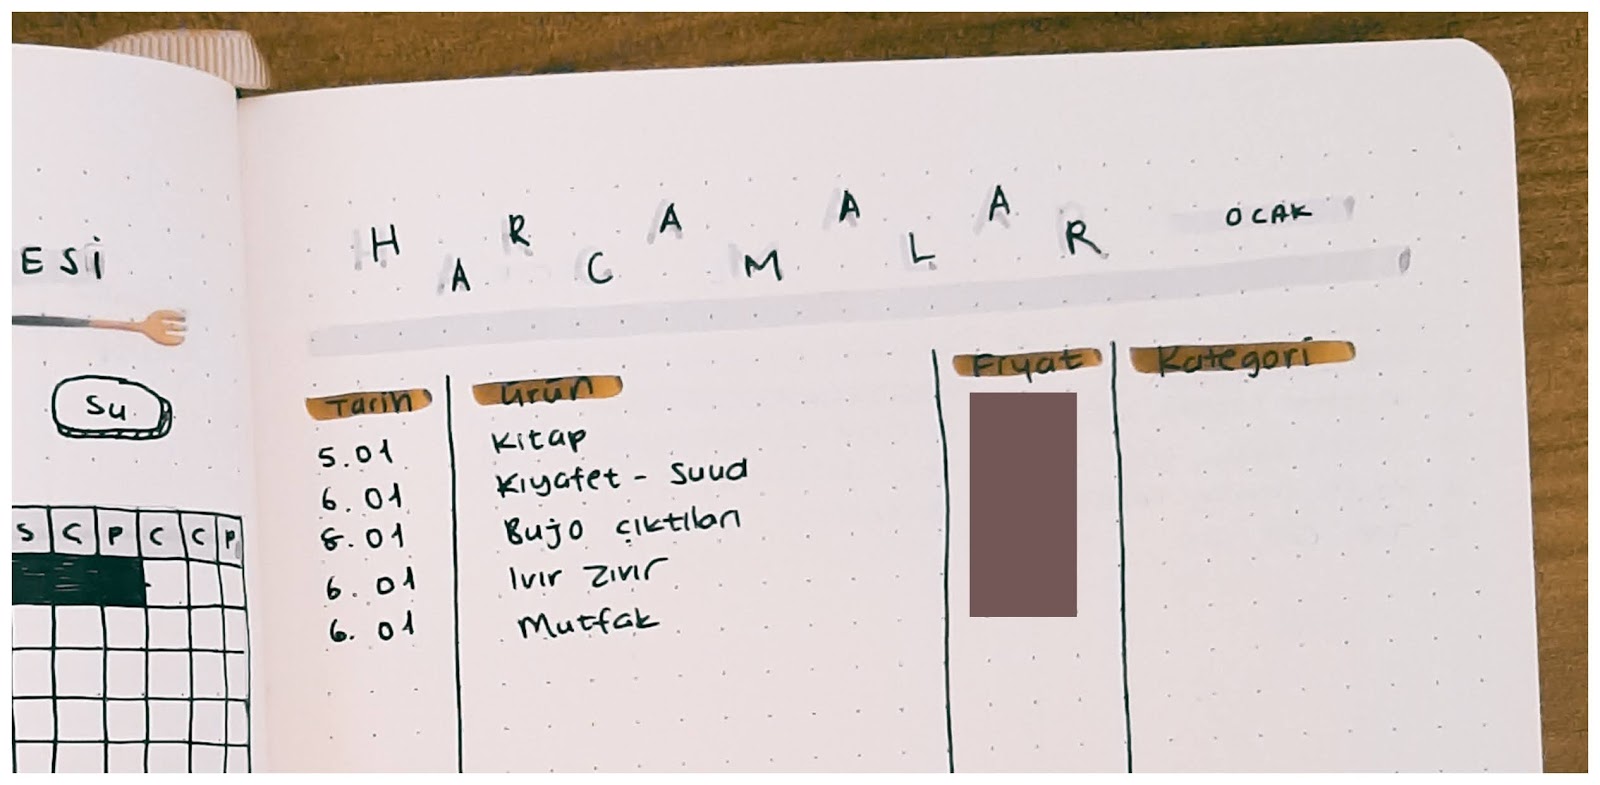 ESİ
Su
S Ç P C C P
HARCAMALAR OCAK
Tarih Ürün Fiyat Kategori
5.01 Kitap
6.01 Kıyafet - Suud
8.01 Bujo çıktıları
6.01 Ivır Zıvır
6.01 Mutfak